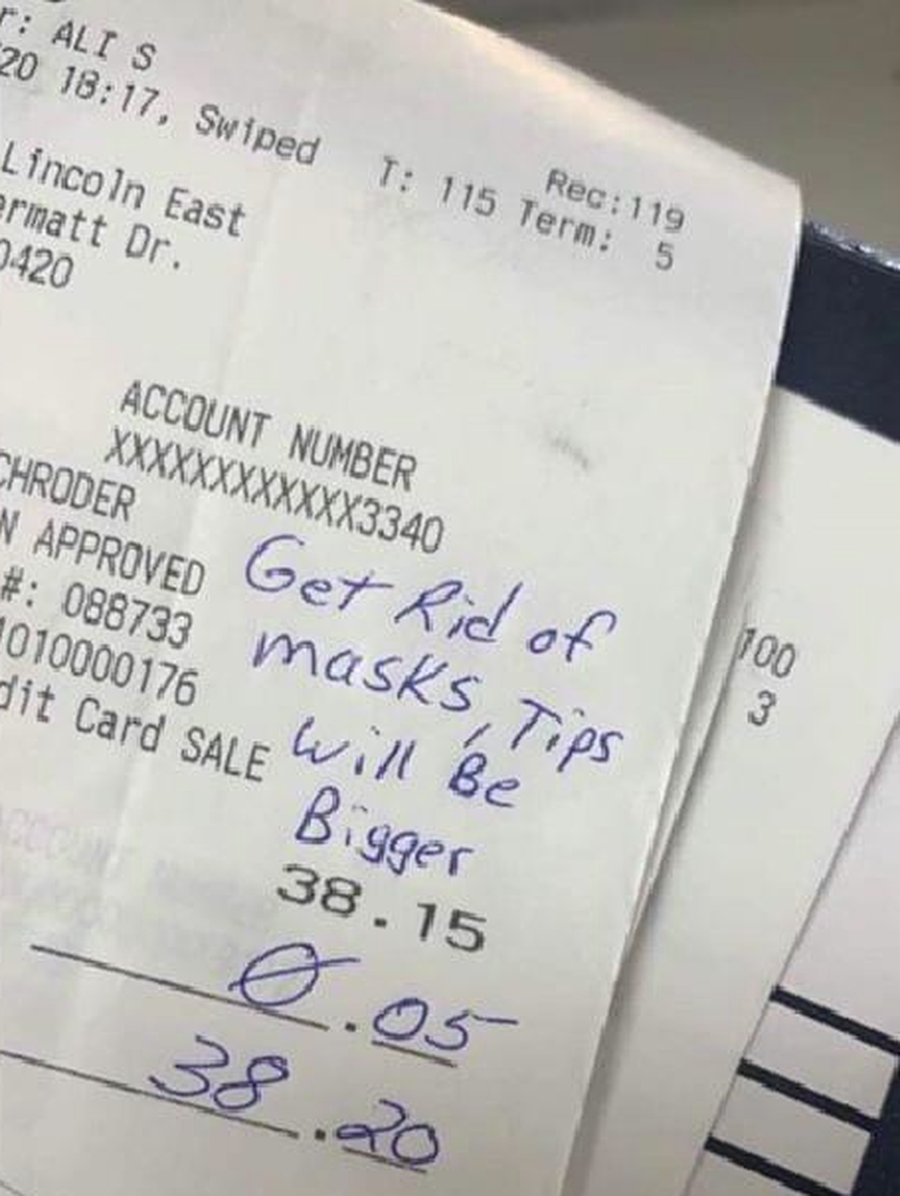 : ALI S
20 18:17, Swiped
Rec:119
T: 115 Term: 5
Lincoln East
ermatt Dr.
0420
ACCOUNT NUMBER
XXXXXXXXXXXX3340
CHRODER
N APPROVED
#: 088733
1010000176
dit Card SALE
Get Rid of
masks, Tips
will Be
Bigger
38.15
0.05
38.20
100
3